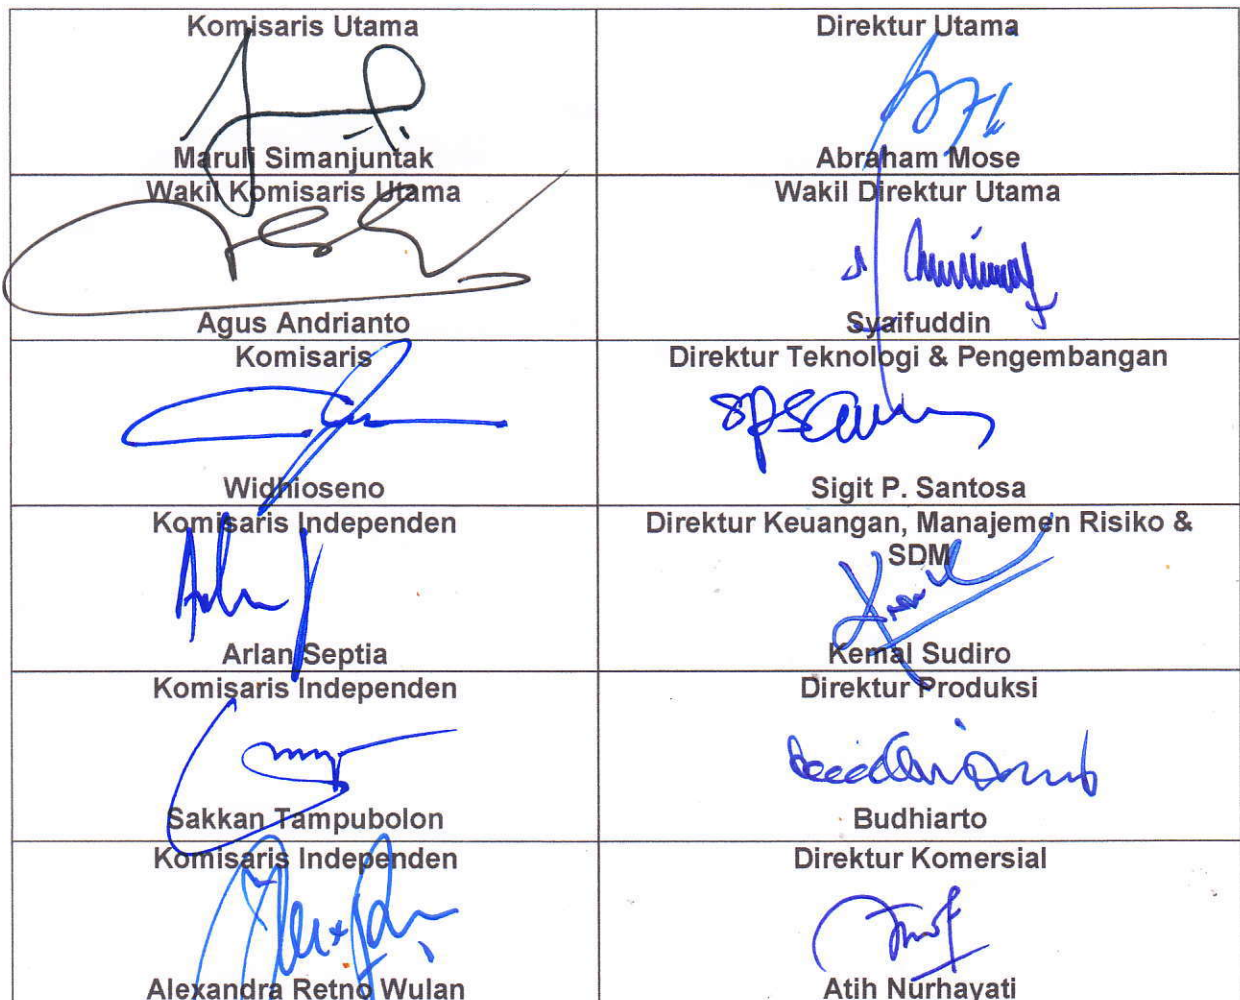 Komisaris Utama
Maruli Simanjuntak
Direktur Utama
Abraham Mose
Wakil Komisaris Utama
Agus Andrianto
Wakil Direktur Utama
Syaifuddin
Komisaris
Widhioseno
Direktur Teknologi & Pengembangan
Sigit P. Santosa
Komisaris Independen
Arlan Septia
Direktur Keuangan, Manajemen Risiko &
SDM
Kemal Sudiro
Komisaris Independen
Sakkan Tampubolon
Direktur Produksi
Budhiarto
Komisaris Independen
Alexandra Retno Wulan
Direktur Komersial
Atih Nurhayati